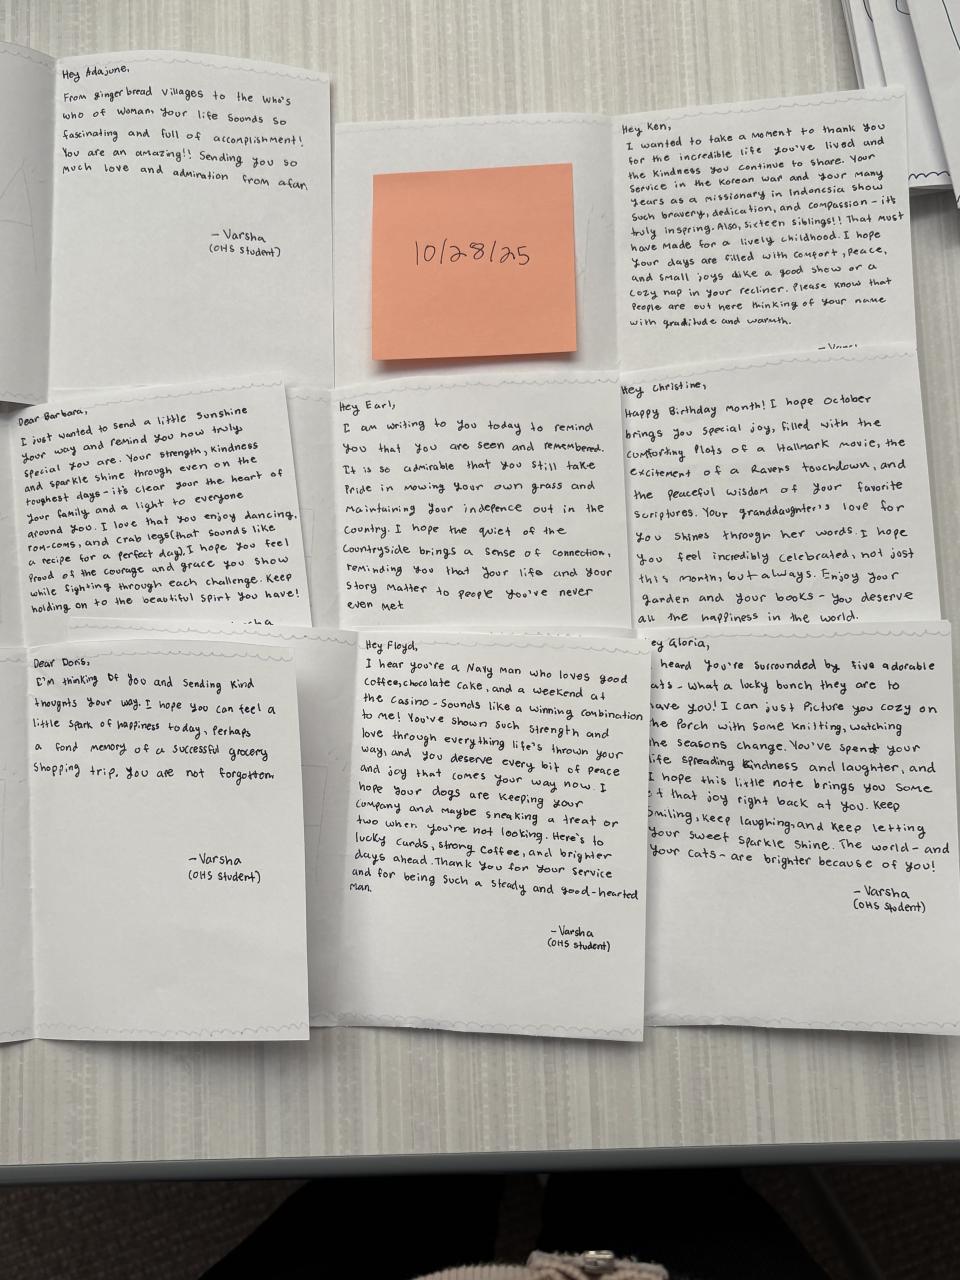 Hey Adajune,
From gingerbread villages to the who's
who of woman, your life sounds so
fascinating and full of accomplishment!
You are an amazing!! Sending you so
much love and admiration from afar.
- Varsha
(OHS student)
10/28/25
Hey Ken,
I wanted to take a moment to thank you
for the incredible life you've lived and
the kindness you continue to share. Your
service in the Korean War and your many
years as a missionary in Indonesia show
such bravery, dedication, and compassion - it's
truly inspring. Also, sixteen siblings!! That must
have made for a lively childhood. I hope
your days are filled with comfort, peace,
and small joys like a good show or a
cozy nap in your recliner. Please know that
people are out here thinking of your name
with graditude and warmth.
Dear Barbara,
I just wanted to send a little sunshine
your way and remind you how truly
special you are. Your strength, kindness
and sparkle shine through even on the
toughest days - it's clear your the heart of
your family and a light to everyone
around you. I love that you enjoy dancing,
rom-coms, and crab legs (that sounds like
a recipe for a perfect day). I hope you feel
proud of the courage and grace you show
while fighting through each challenge. Keep
holding on to the beautiful spirt you have!
Hey Earl,
I am writing to you today to remind
you that you are seen and remembered.
It is so admirable that you still take
pride in mowing your own grass and
maintaining your indepence out in the
country. I hope the quiet of the
countryside brings a sense of connection,
reminding you that your life and your
story matter to people you've never
even met
Hey Christine,
Happy Birthday month! I hope October
brings you special joy, filled with the
comforting plots of a Hallmark movie, the
excitement of a Ravens touchdown, and
the peaceful wisdom of your favorite
scriptures. Your granddaughter's love for
you shines through her words. I hope
you feel incredibly celebrated, not just
this month, but always. Enjoy your
garden and your books - you deserve
all the happiness in the world.
Dear Doris,
I'm thinking of you and sending kind
thoughts your way. I hope you can feel a
little spark of happiness today, perhaps
a fond memory of a successful grocery
shopping trip. You are not forgotten
- Varsha
(OHS student)
Hey Floyd,
I hear you're a Navy man who loves good
coffee, chocolate cake, and a weekend at
the casino - sounds like a winning combination
to me! You've shown such strength and
love through everything life's thrown your
way, and you deserve every bit of peace
and joy that comes your way now. I
hope your dogs are keeping your
company and maybe sneaking a treat or
two when you're not looking. Here's to
lucky cards, strong coffee, and brighter
days ahead. Thank you for your service
and for being such a steady and good-hearted
man.
- Varsha
(OHS student)
ey Gloria,
heard you're surrounded by five adorable
ats - what a lucky bunch they are to
ave you! I can just picture you cozy on
he porch with some knitting, watching
he seasons change. You've spent your
life spreading kindness and laughter, and
I hope this little note brings you some
of that joy right back at you. Keep
smiling, keep laughing, and keep letting
your sweet sparkle shine. The world - and
your cats - are brighter because of you!
- Varsha
(OHS student)